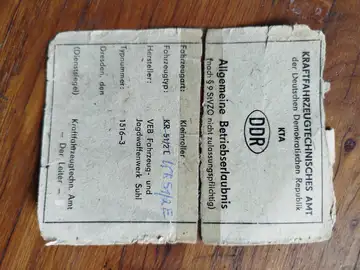 KRAFTFAHRZEUGTECHNISCHES AMT
der Deutschen Demokratischen Republik
KTA
DDR
Allgemeine Betriebserlaubnis
(nach § 9 StVZO nicht zulassungspflichtig)
Fahrzeugart: Kleinroller
Fahrzeugtyp: KR 51/2E KR 51/2E
Hersteller: VEB Fahrzeug- und
Jagdwaffenwerk Suhl
Typnummer: 1516-3
Dresden, den
(Dienstsiegel) Kraftfahrzeugtechn. Amt
- Der Leiter -